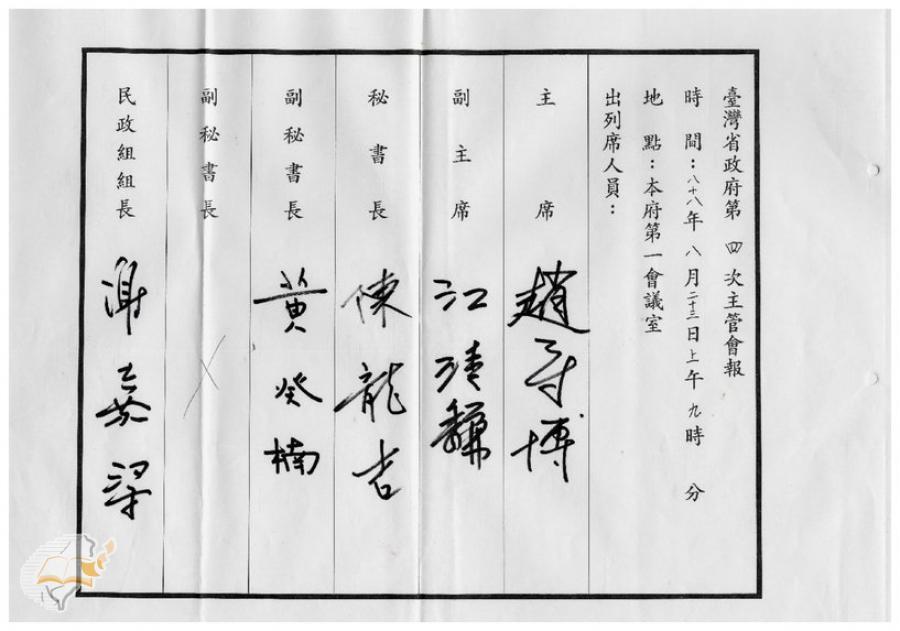 臺灣省政府第四次主管會報
時間：八十八年八月二十三日上午九時 分
地點：本府第一會議室
出列席人員：
主席 趙守博
副主席 江清馦
秘書長 陳龍吉
副秘書長 黃癸楠
副秘書長
民政組組長 謝嘉梁